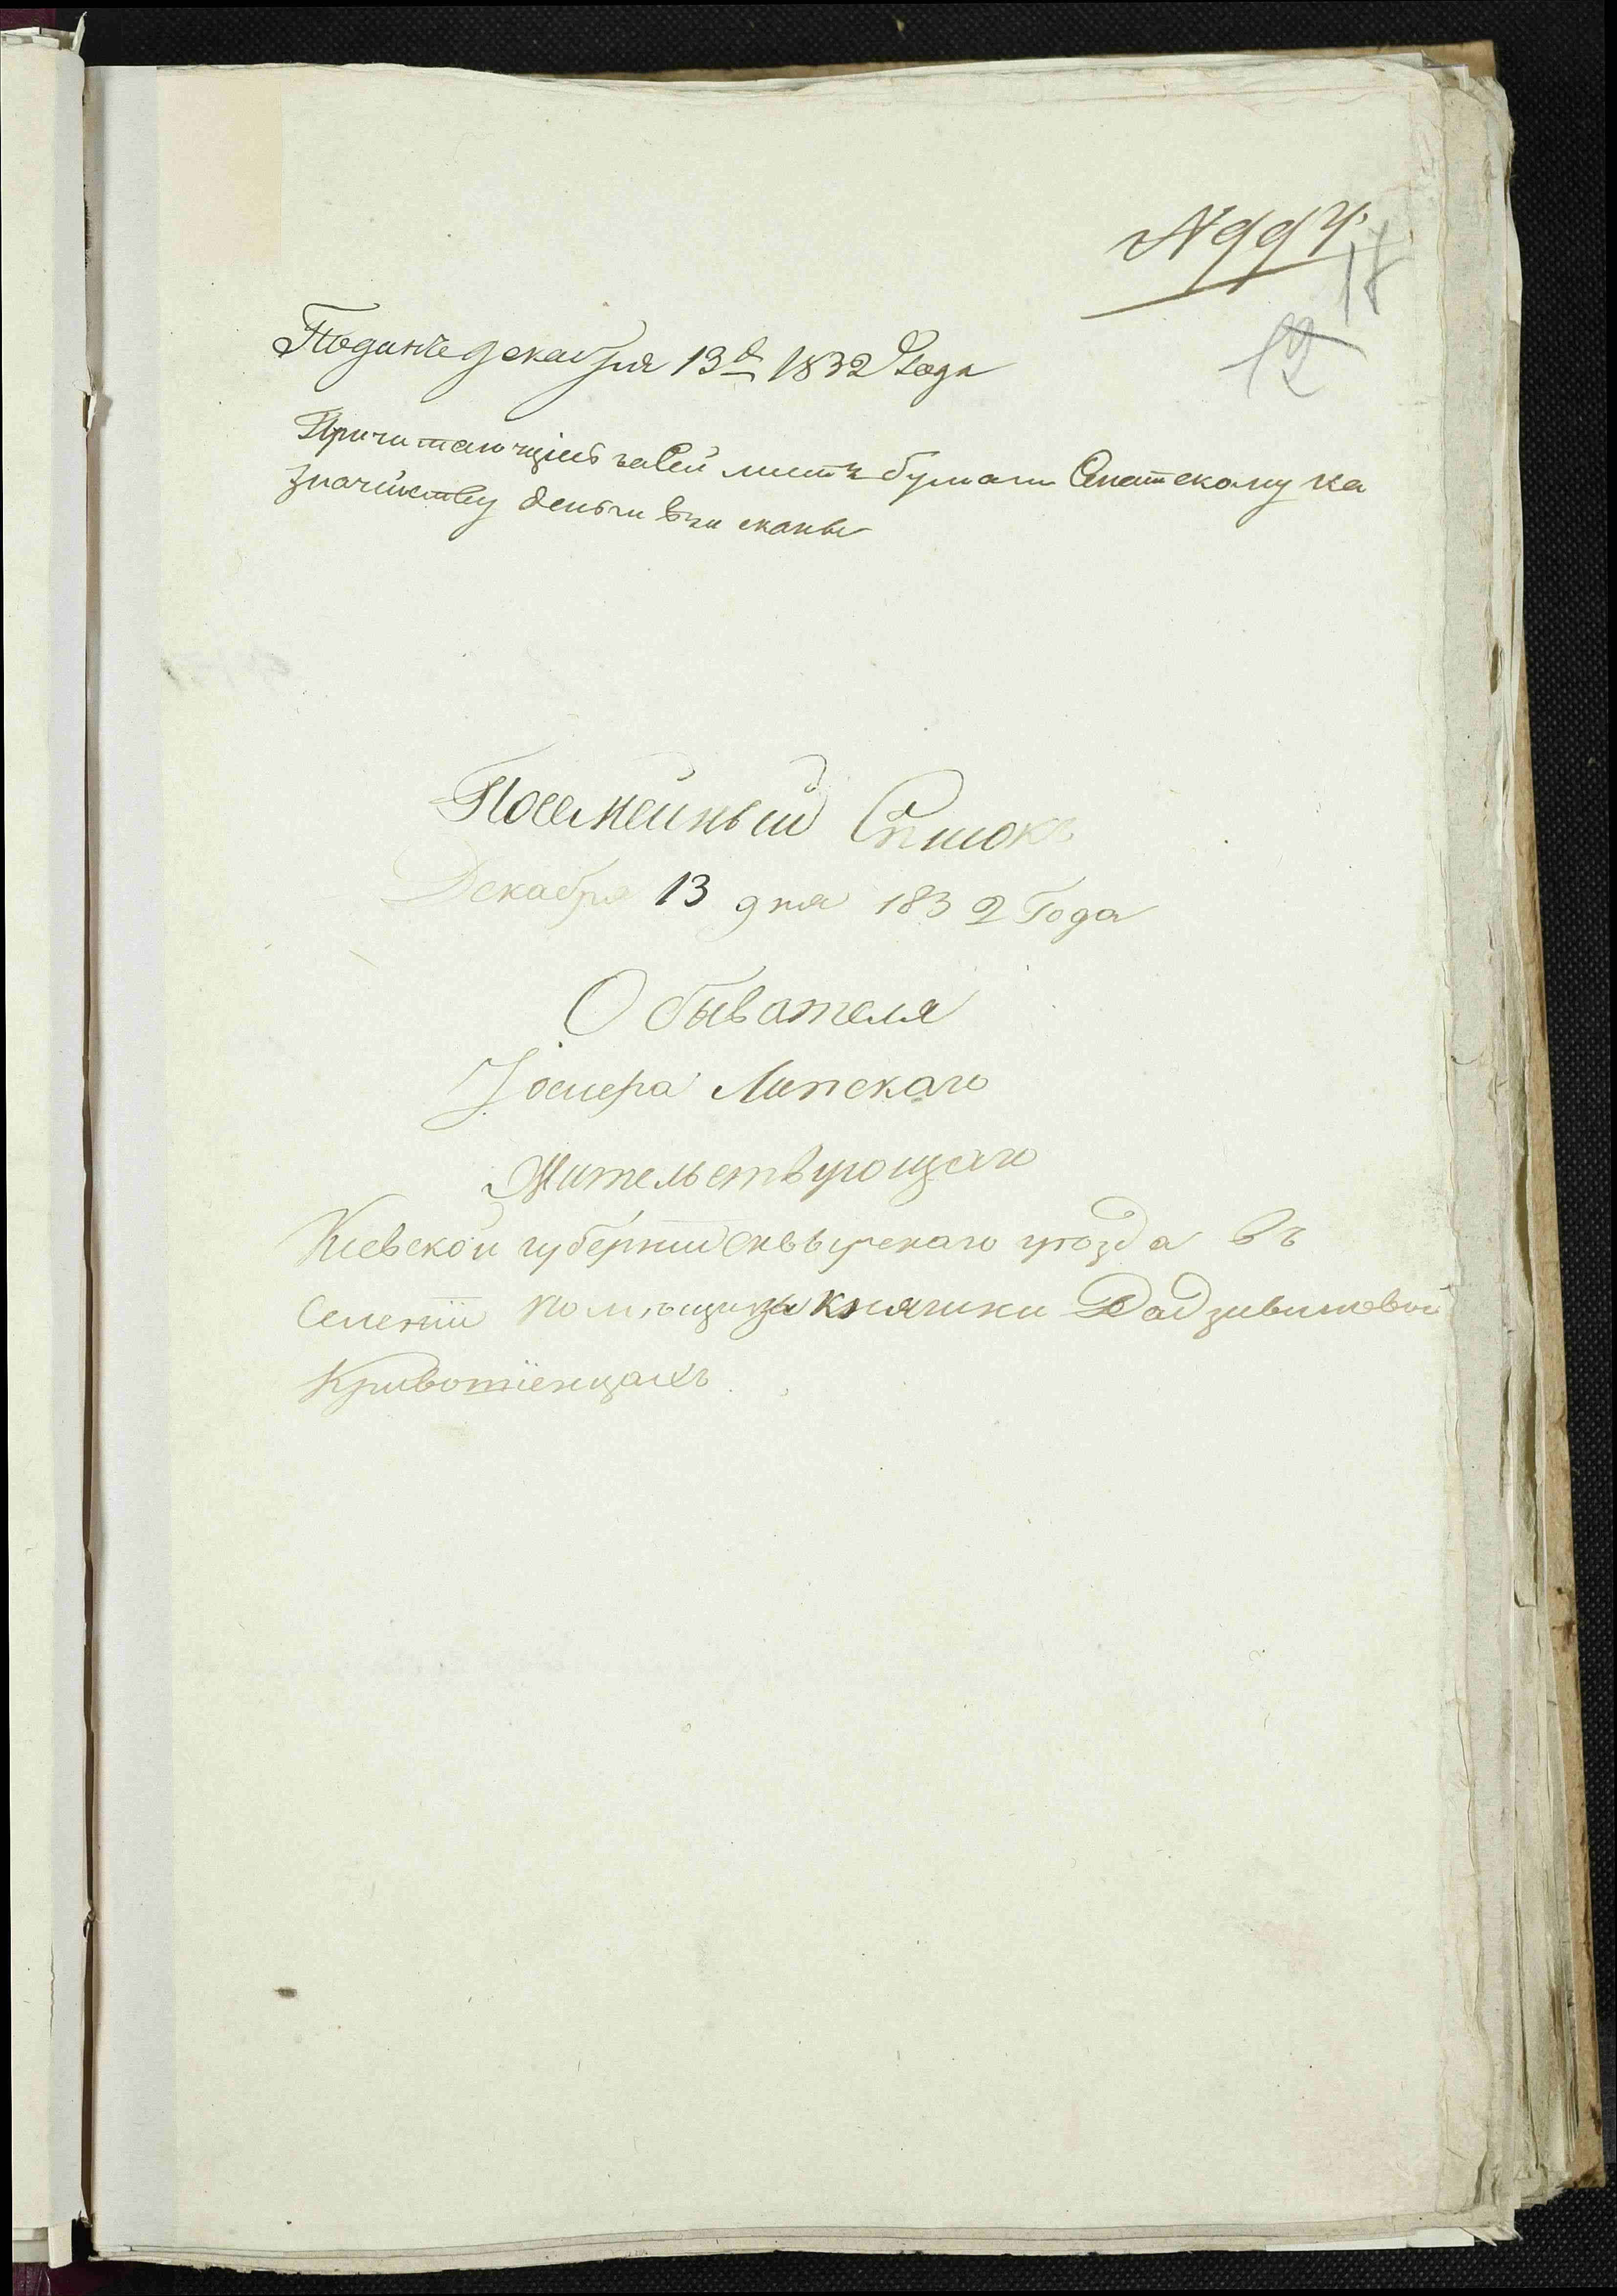 N 994.
18
12
Поданъ декабря 13 д 1832 Года
Причитающіеся за Сей листъ бумаги Сквирскому Ка
значейству деньги взысканы
Посемейный Списокъ
Декабря 13 дня 1832 Года
Обывателя
Іосифа Липскаго
Жительствующаго
Кіевской губерніи Сквырскаго уѣзда въ
Селеніи помѣщицы Княгини Радзивиловой
Кривошіенцахъ